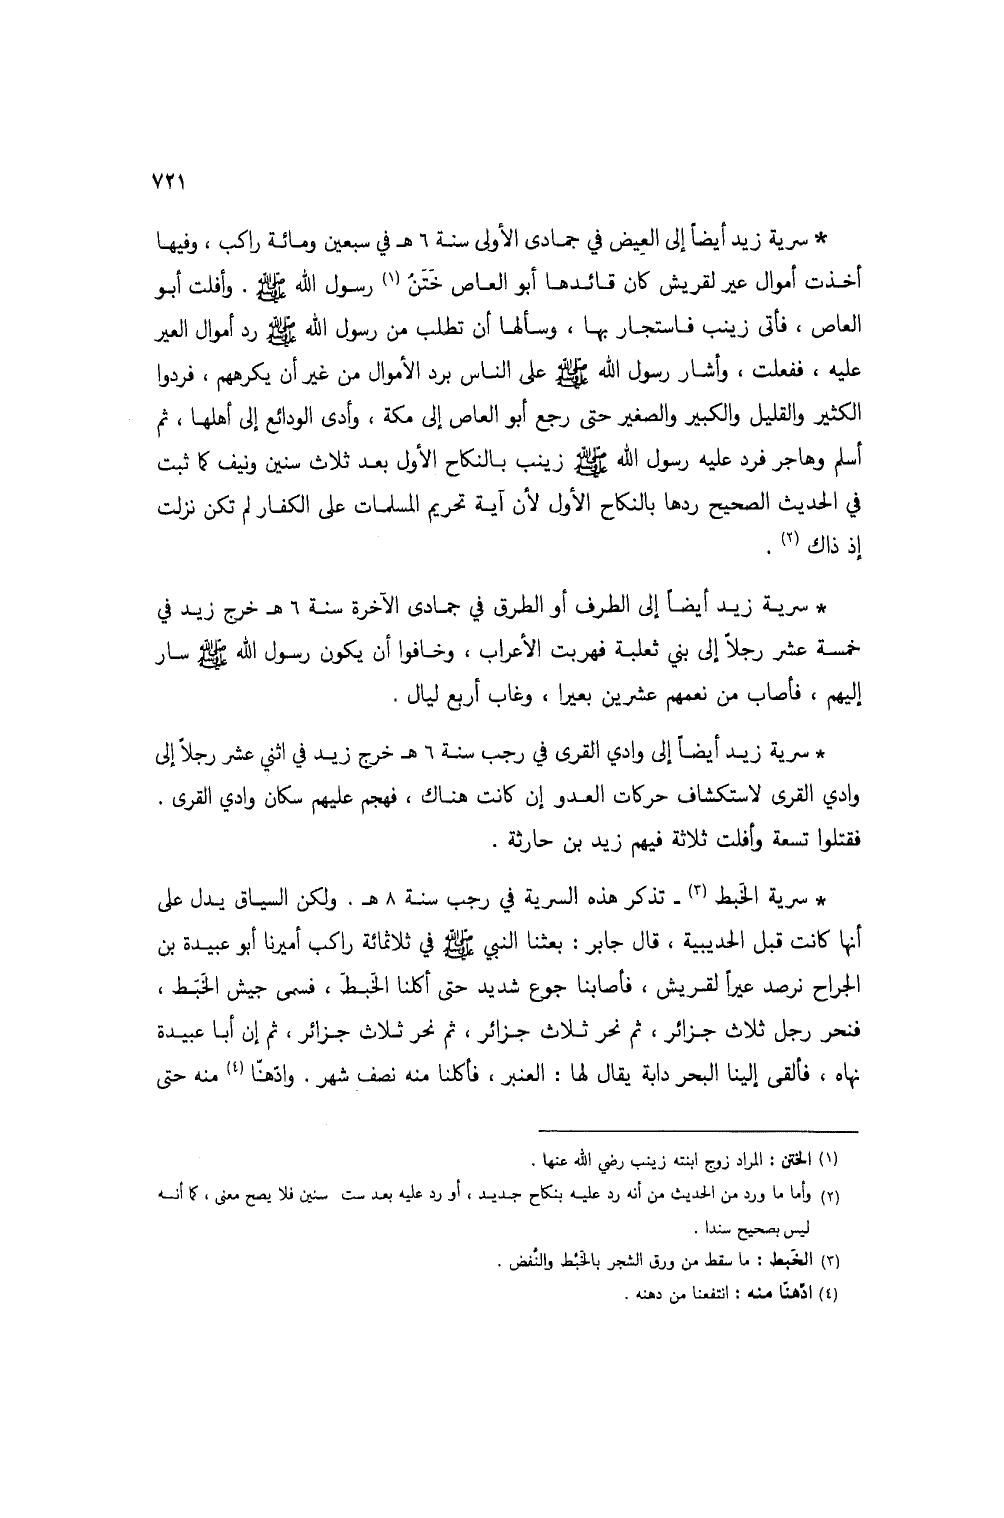 ٧٢١
* سرية زيد أيضاً إلى العيص في جمادى الأولى سنة ٦ هـ في سبعين ومائة راكب ، وفيها
أخذت أموال عير لقريش كان قائدها أبو العاص خَتَنُ (١) رسول الله ﷺ . وأفلت أبو
العاص ، فأتى زينب فاستجار بها ، وسألها أن تطلب من رسول الله ﷺ رد أموال العير
عليه ، ففعلت ، وأشار رسول الله ﷺ على الناس برد الأموال من غير أن يكرههم ، فردوا
الكثير والقليل والكبير والصغير حتى رجع أبو العاص إلى مكة ، وأدى الودائع إلى أهلها ، ثم
أسلم وهاجر فرد عليه رسول الله ﷺ زينب بالنكاح الأول بعد ثلاث سنين ونيف كما ثبت
في الحديث الصحيح ردها بالنكاح الأول لأن آية تحريم المسلمات على الكفار لم تكن نزلت
إذ ذاك (٢) .
* سرية زيد أيضاً إلى الطرف أو الطرق في جمادى الآخرة سنة ٦ هـ خرج زيد في
خمسة عشر رجلاً إلى بني ثعلبة فهربت الأعراب ، وخافوا أن يكون رسول الله ﷺ سار
إليهم ، فأصاب من نعمهم عشرين بعيرا ، وغاب أربع ليال .
* سرية زيد أيضاً إلى وادي القرى في رجب سنة ٦ هـ خرج زيد في اثني عشر رجلاً إلى
وادي القرى لاستكشاف حركات العدو إن كانت هناك ، فهجم عليهم سكان وادي القرى .
فقتلوا تسعة وأفلت ثلاثة فيهم زيد بن حارثة .
* سرية الخَبط (٣) ـ تذكر هذه السرية في رجب سنة ٨ هـ . ولكن السياق يدل على
أنها كانت قبل الحديبية ، قال جابر : بعثنا النبي ﷺ في ثلاثمائة راكب أميرنا أبو عبيدة بن
الجراح نرصد عيراً لقريش ، فأصابنا جوع شديد حتى أكلنا الخَبطَ ، فسمى جيش الخَبَط ،
فنحر رجل ثلاث جزائر ، ثم نحر ثلاث جزائر ، ثم نحر ثلاث جزائر ، ثم إن أبا عبيدة
نهاه ، فألقى إلينا البحر دابة يقال لها : العنبر ، فأكلنا منه نصف شهر . وادّهنّا (٤) منه حتى
(١) الختن : المراد زوج ابنته زينب رضي الله عنها .
(٢) وأما ما ورد من الحديث من أنه رد عليه بنكاح جديد ، أو رد عليه بعد ست سنين فلا يصح معنى ، كما أنه
ليس بصحيح سندا .
(٣) الخَبط : ما سقط من ورق الشجر بالخَبْط والنُفض .
(٤) ادّهنّا منه : انتفعنا من دهنه .